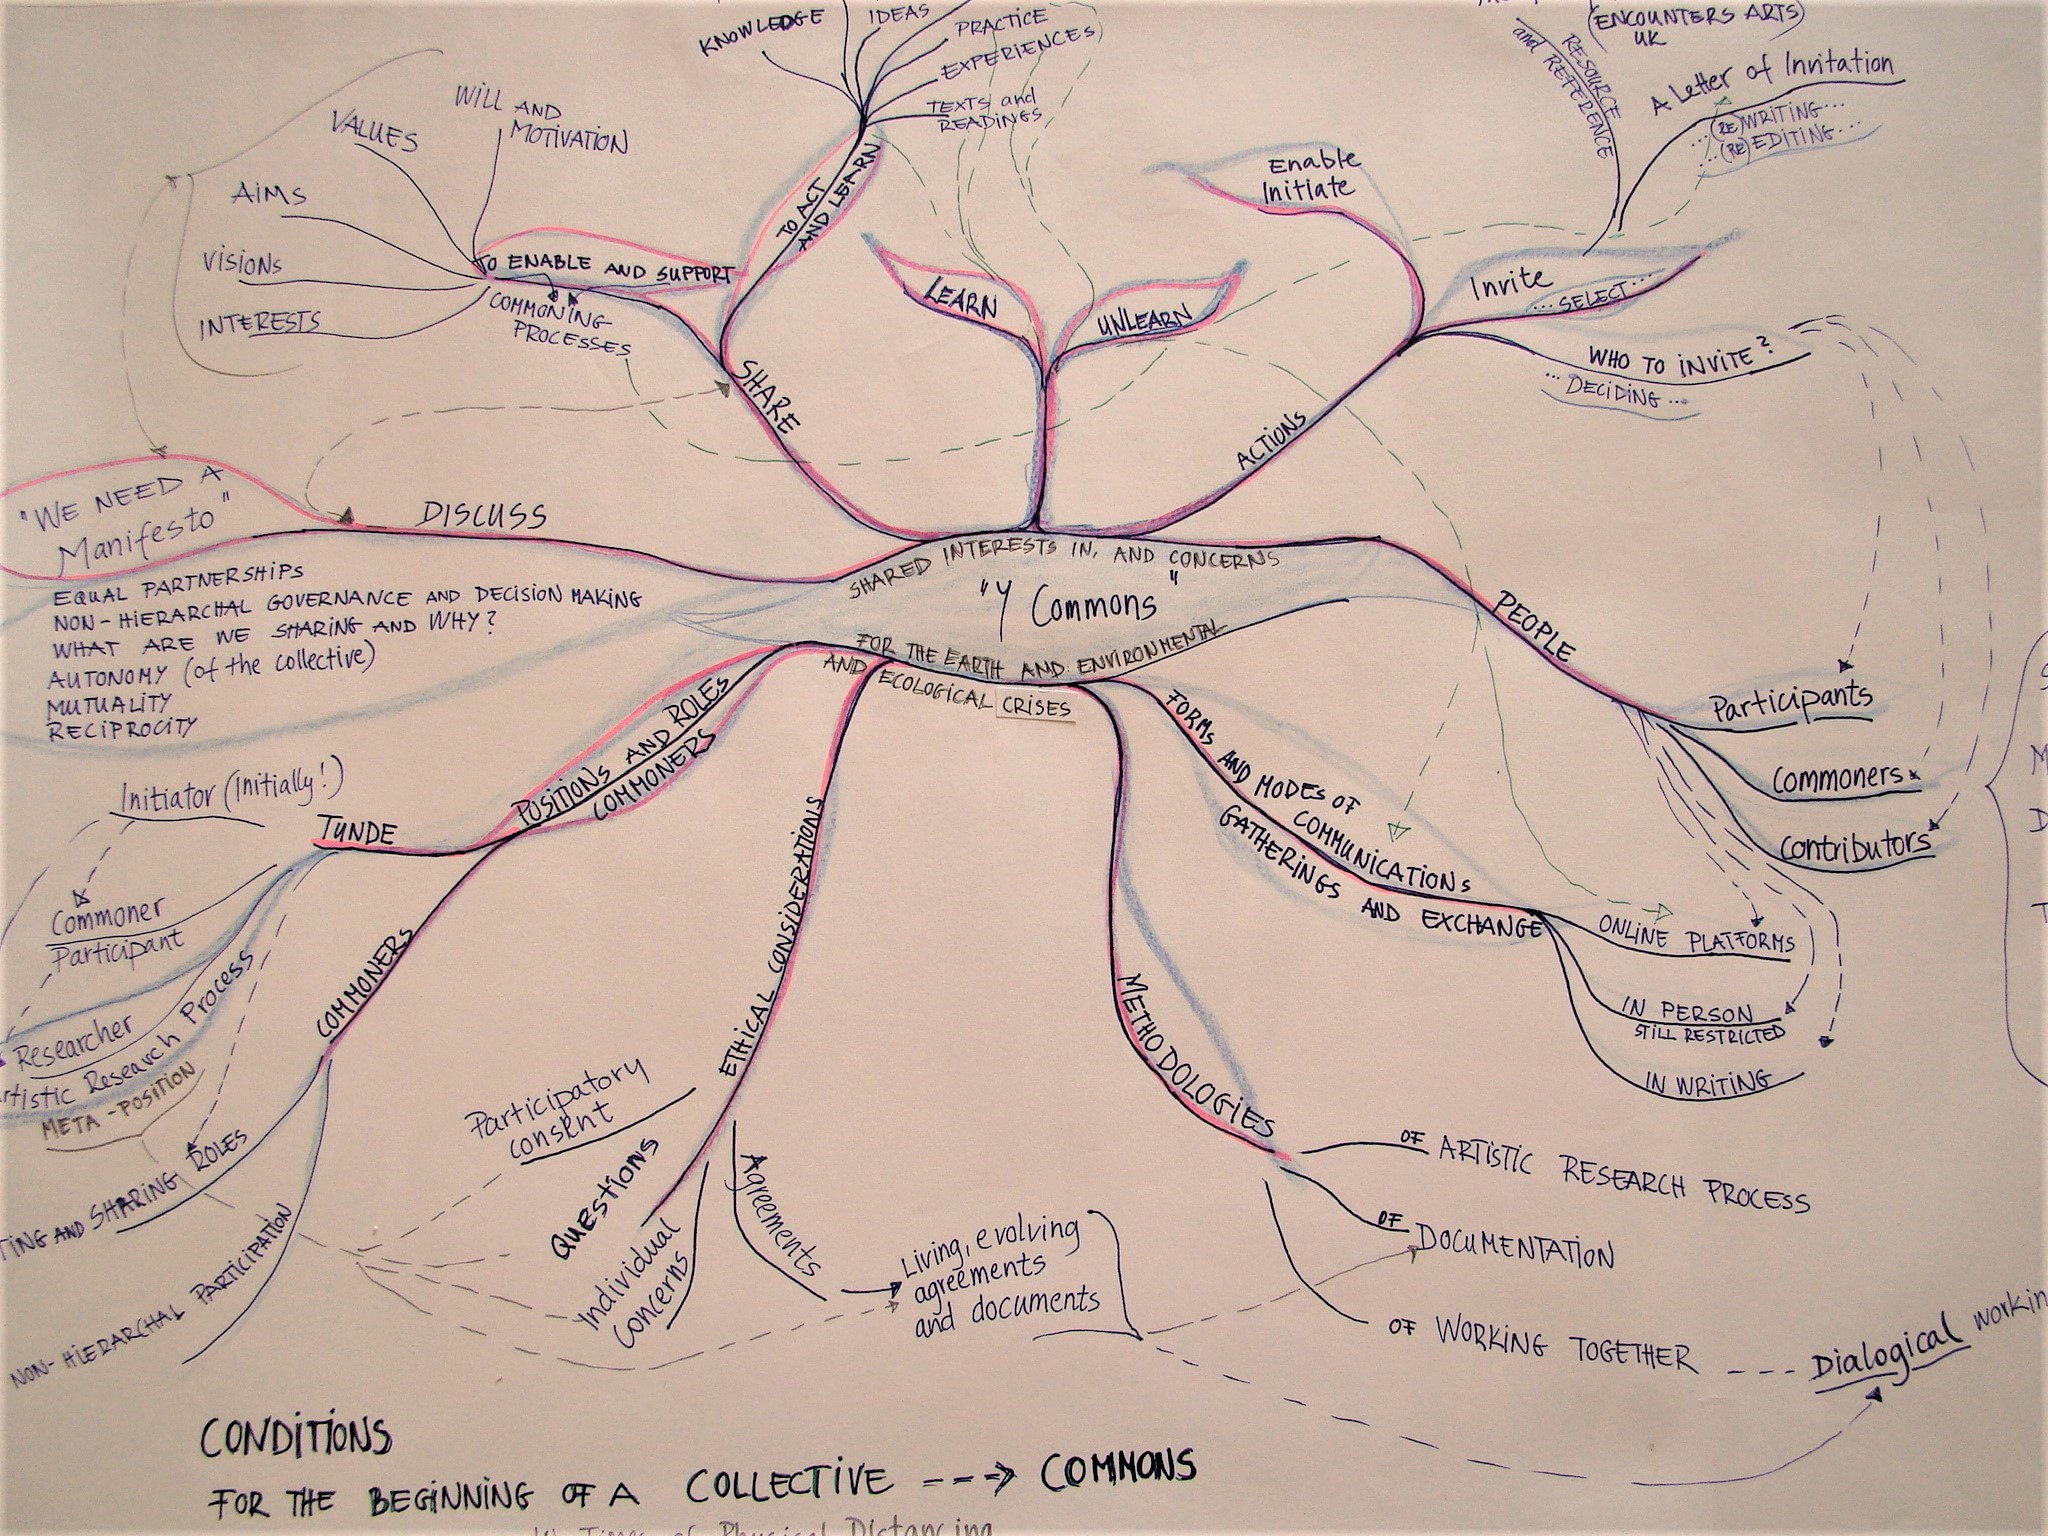 KNOWLEDGE
IDEAS
PRACTICE
EXPERIENCES
TEXTS and
READINGS
(ENCOUNTERS ARTS)
UK
RESOURCE
and REFERENCE
A Letter of Invitation
...(RE)WRITING...
...(RE)EDITING...
WILL AND
MOTIVATION
VALUES
AIMS
VISIONS
INTERESTS
TO ENABLE AND SUPPORT
COMMONING
PROCESSES
TO ACT
AND LEARN
SHARE
LEARN
UNLEARN
Enable
Initiate
Invite
...SELECT...
WHO TO INVITE?
...DECIDING...
ACTIONS
"WE NEED A
Manifesto"
DISCUSS
EQUAL PARTNERSHIPS
NON-HIERARCHAL GOVERNANCE AND DECISION MAKING
WHAT ARE WE SHARING AND WHY?
AUTONOMY (of the collective)
MUTUALITY
RECIPROCITY
SHARED INTERESTS IN, AND CONCERNS
"Y Commons"
FOR THE EARTH AND ENVIRONMENTAL
AND ECOLOGICAL CRISES
PEOPLE
Participants
Commoners
Contributors
POSITIONS AND ROLES
COMMONERS
TUNDE
Initiator (Initially!)
Commoner
Participant
Researcher
Artistic Research Process
META-POSITION
COMMONERS
TING AND SHARING ROLES
NON-HIERARCHAL PARTICIPATION
ETHICAL CONSIDERATIONS
Participatory
consent
QUESTIONS
Individual
Concerns
Agreements
Living, evolving
agreements
and documents
FORMS AND MODES OF
COMMUNICATIONS
GATHERINGS AND EXCHANGE
ONLINE PLATFORMS
IN PERSON
STILL RESTRICTED
IN WRITING
METHODOLOGIES
OF ARTISTIC RESEARCH PROCESS
OF DOCUMENTATION
OF WORKING TOGETHER --- Dialogical workin
CONDITIONS
FOR THE BEGINNING OF A COLLECTIVE ---> COMMONS
Times of Physical Distancing